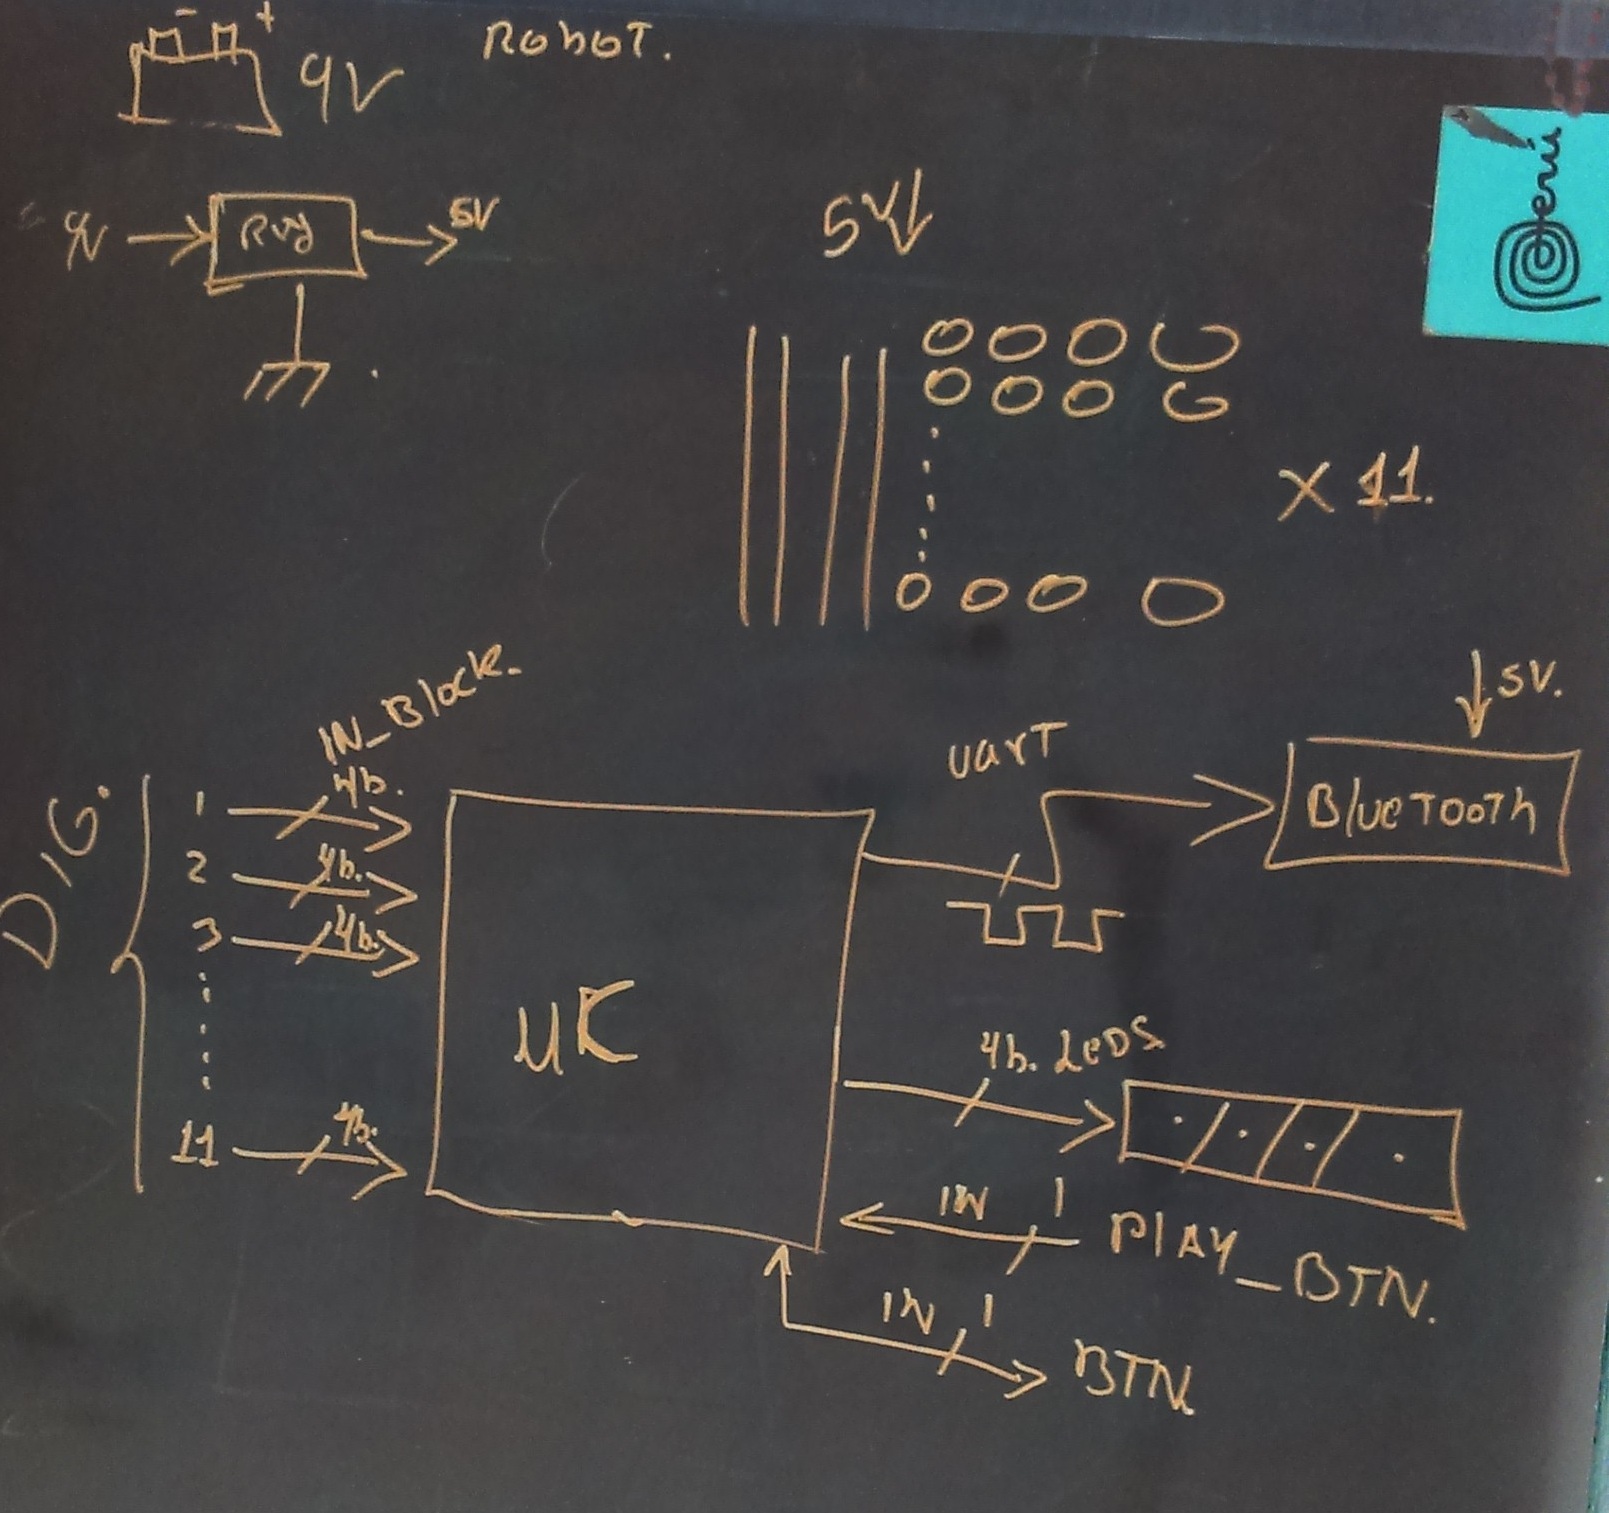 - +
9V
RoboT.
9V
Reg
5V
5V
X 11.
IN_Block.
5V.
uarT
BlueTooTh
DIG.
1
4b.
2
4b.
3
4b.
11
4b.
uC
4b. LeDS
IN 1
PlAY_BTN.
IN 1
BTN
Perú